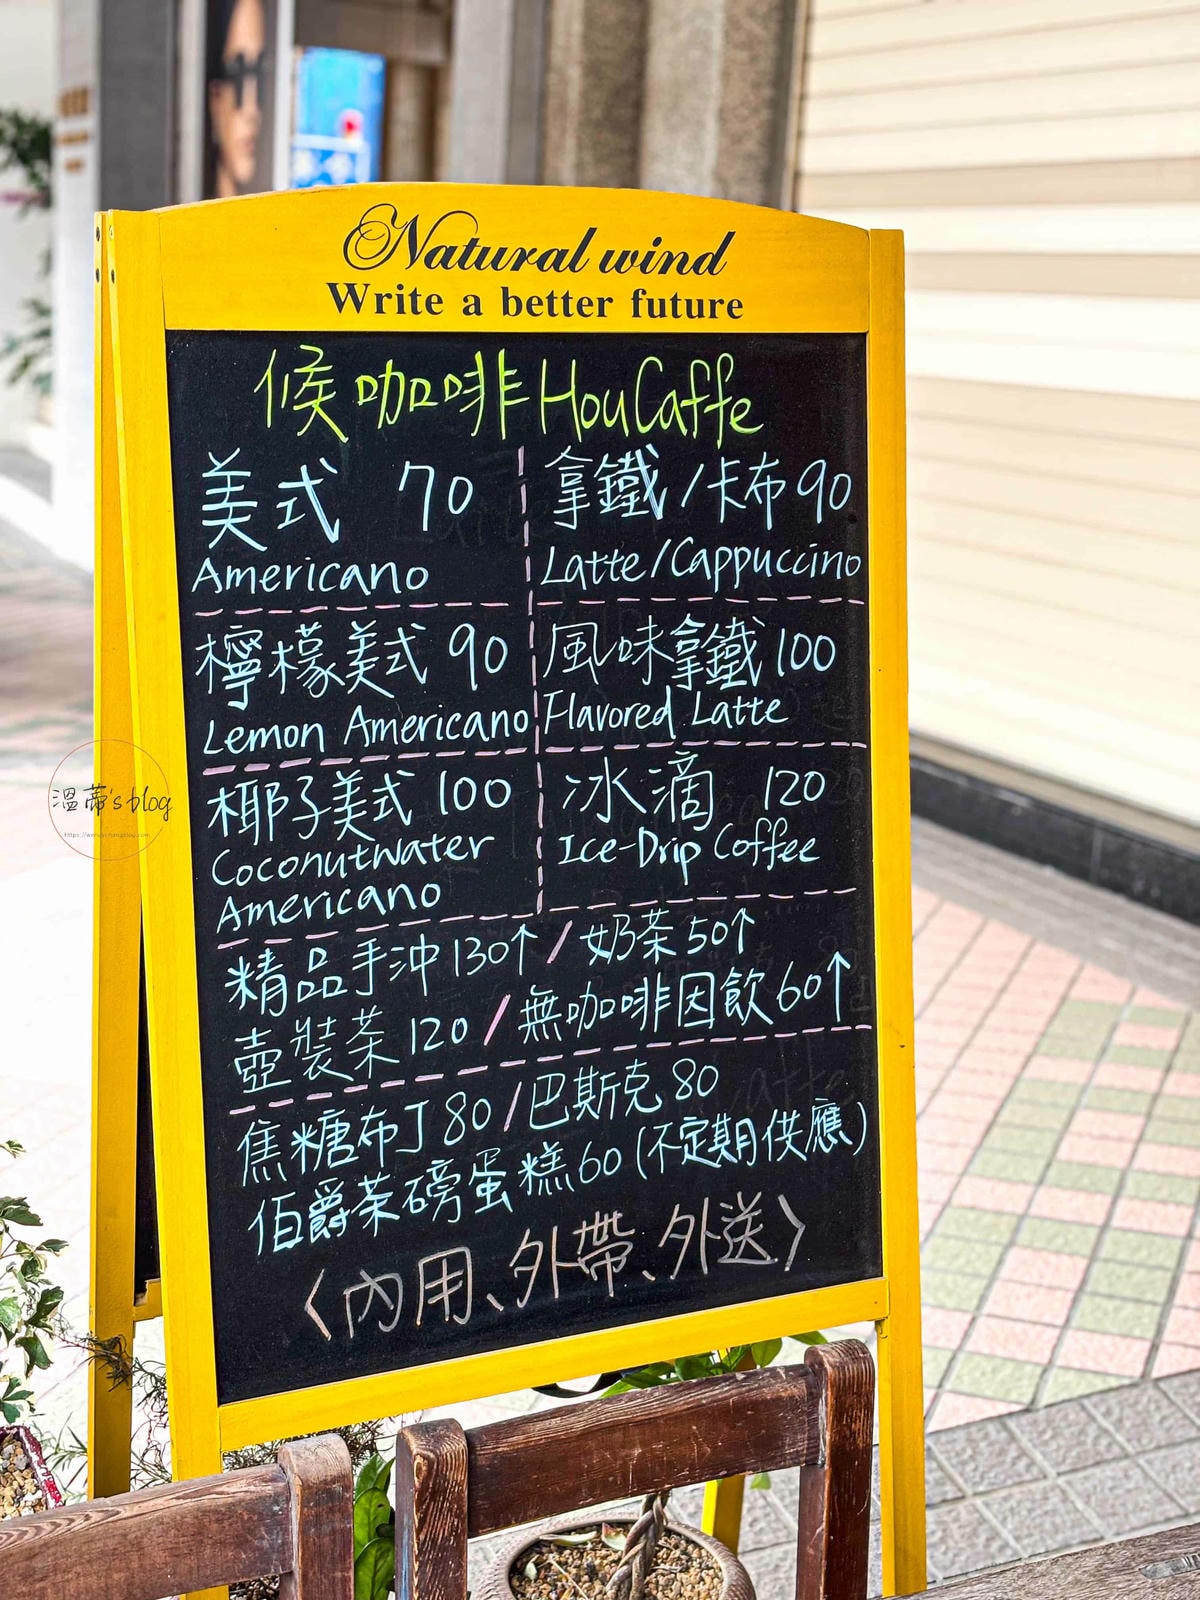 Natural wind
Write a better future
候咖啡 HouCaffe
美式 70
Americano
拿鐵/卡布 90
Latte/Cappuccino
檸檬美式 90
Lemon Americano
風味拿鐵 100
Flavored Latte
椰子美式 100
Coconutwater
Americano
冰滴 120
Ice-Drip Coffee
精品手沖 130↑ / 奶茶 50↑
壺裝茶 120 / 無咖啡因飲 60↑
焦糖布丁 80 / 巴斯克 80
伯爵茶磅蛋糕 60 (不定期供應)
〈內用、外帶、外送〉
溫蒂's blog